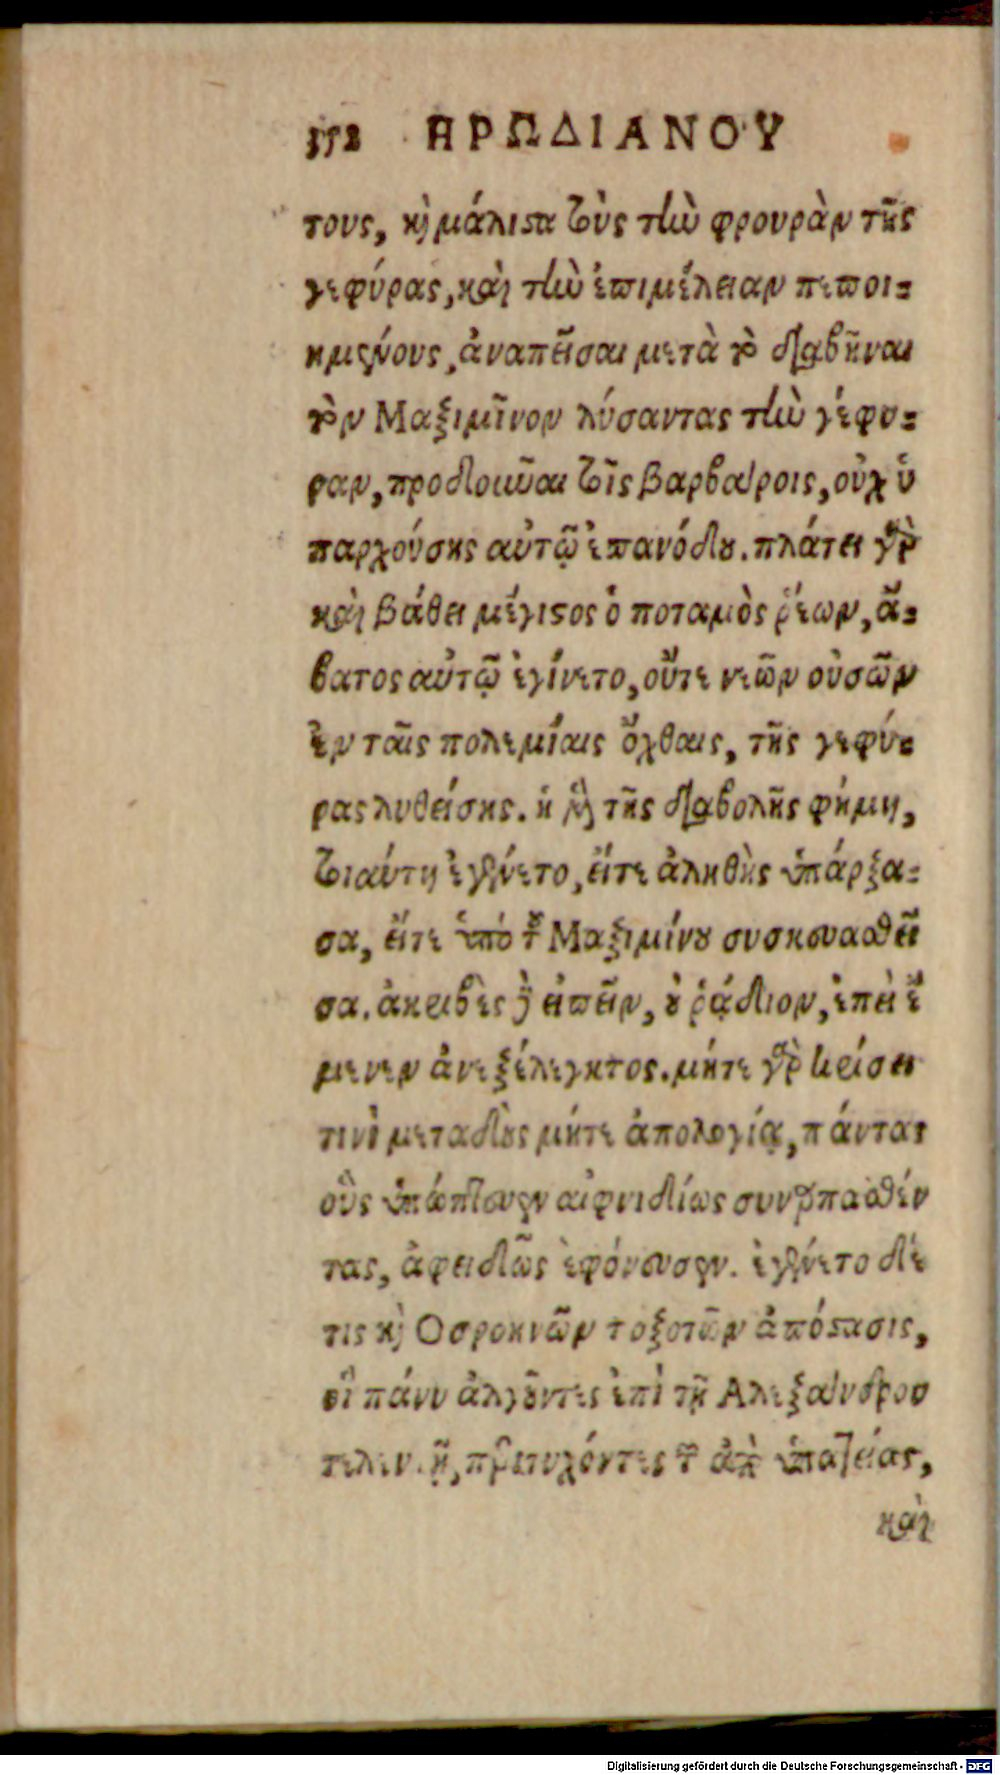 352 ΗΡΩΔΙΑΝΟΥ
τους, κὶ μάλιϛα τοὺς τὴν φρουρὰν τῆς
γεφύρας, καὶ τὴν ἐπιμέλειαν πεποι-
ημένους, ἀναπεῖσαι μετὰ τὸ διαβῆναι
τὸν Μαξιμῖνον λύσαντας τὴν γέφυ-
ραν, προδοῦναι τοῖς βαρβάροις, οὐχ ὑ
παρχούσης αὐτῷ ἐπανόδου. πλάτει γὰρ
καὶ βάθει μέγιϛος ὁ ποταμὸς ῥέων, ἄ-
βατος αὐτῷ ἐγίνετο, οὔτε νεῶν οὐσῶν
ἐν ταῖς πολεμίαις ὄχθαις, τῆς γεφύ-
ρας λυθείσης. ἡ μὲν τῆς διαβολῆς φήμη,
τοιαύτη ἐγένετο, εἴτε ἀληθὴς ὑπάρξα-
σα, εἴτε ὑπὸ τοῦ Μαξιμίνου συσκευασθεῖ
σα. ἀκριβὲς δὲ εἰπεῖν, οὐ ῥᾴδιον, ἐπεὶ ἔ
μενεν ἀνεξέλεγκτος. μήτε γὰρ κρίσει
τινὶ μεταδοὺς μήτε ἀπολογίᾳ, πάντας
οὓς ὑπώπτευεν αἰφνιδίως συναρπασθέν
τας, ἀφειδῶς ἐφόνευσεν. ἐγένετο δέ
τις κὶ Οσροηνῶν τοξοτῶν ἀπόϛασις,
οἳ πάνυ ἀλγοῦντες ἐπὶ τῇ Αλεξάνδρου
τελευτῇ, περιτυχόντες τῶν ἀπὸ ὑπατείας,
καὶ
Digitalisierung gefördert durch die Deutsche Forschungsgemeinschaft - DFG